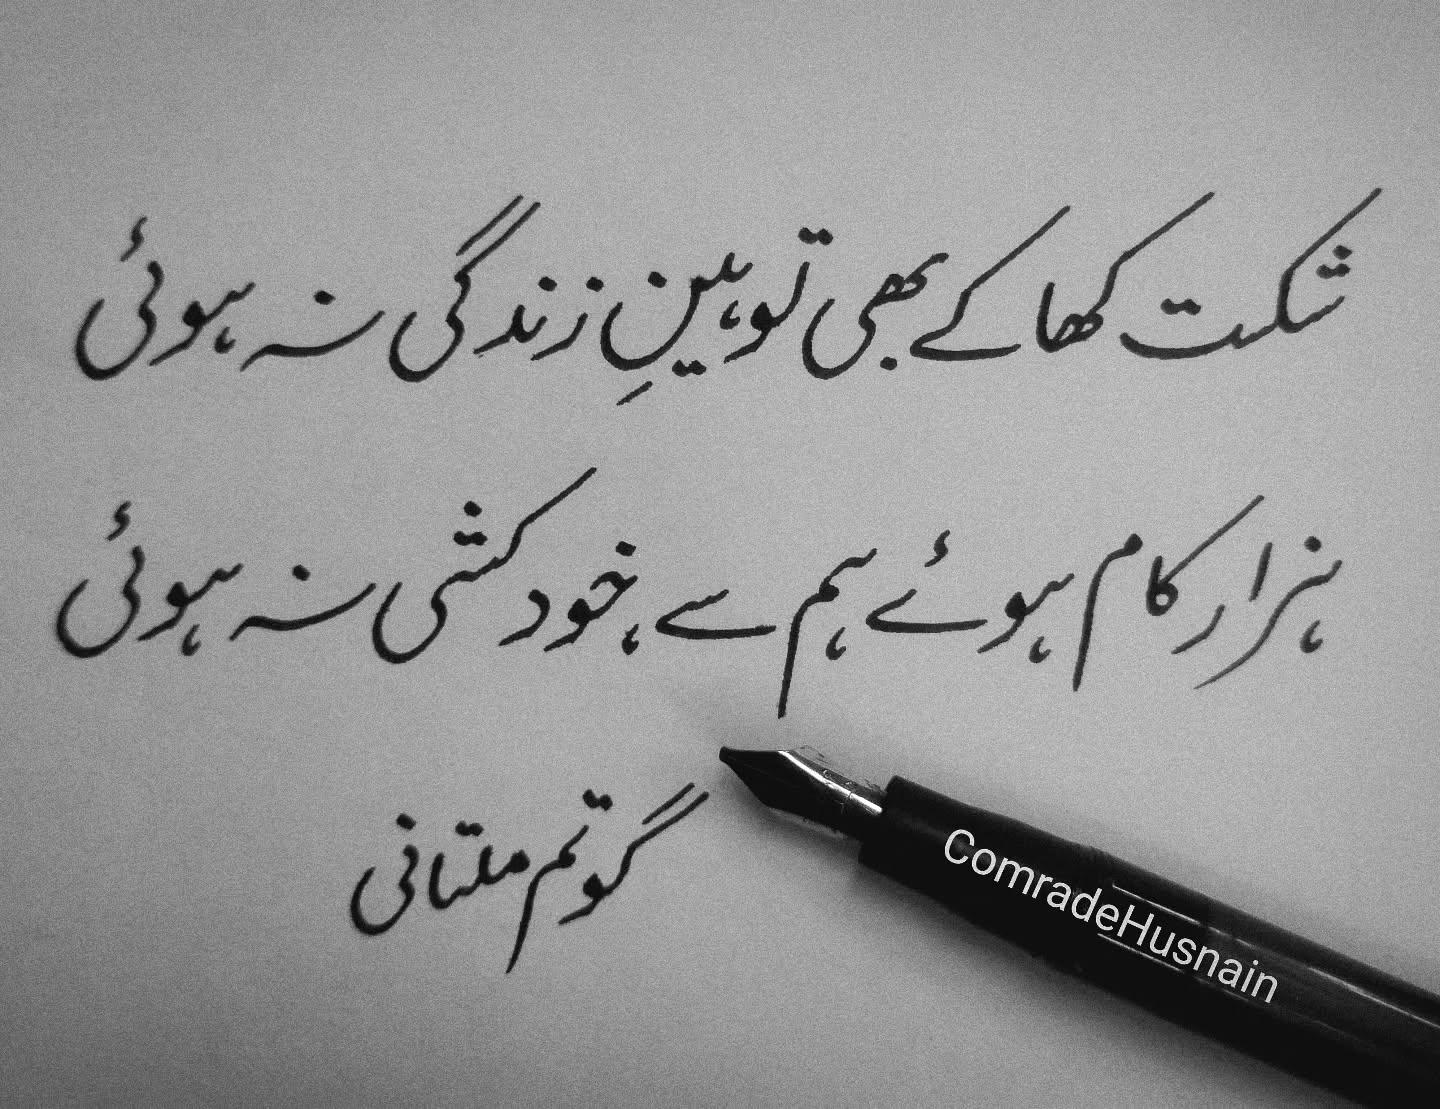 شکست کھا کے بھی توہینِ زندگی نہ ہوئی
ہزار کام ہوئے ہم سے، خودکشی نہ ہوئی
گوتم ملتانی
ComradeHusnain